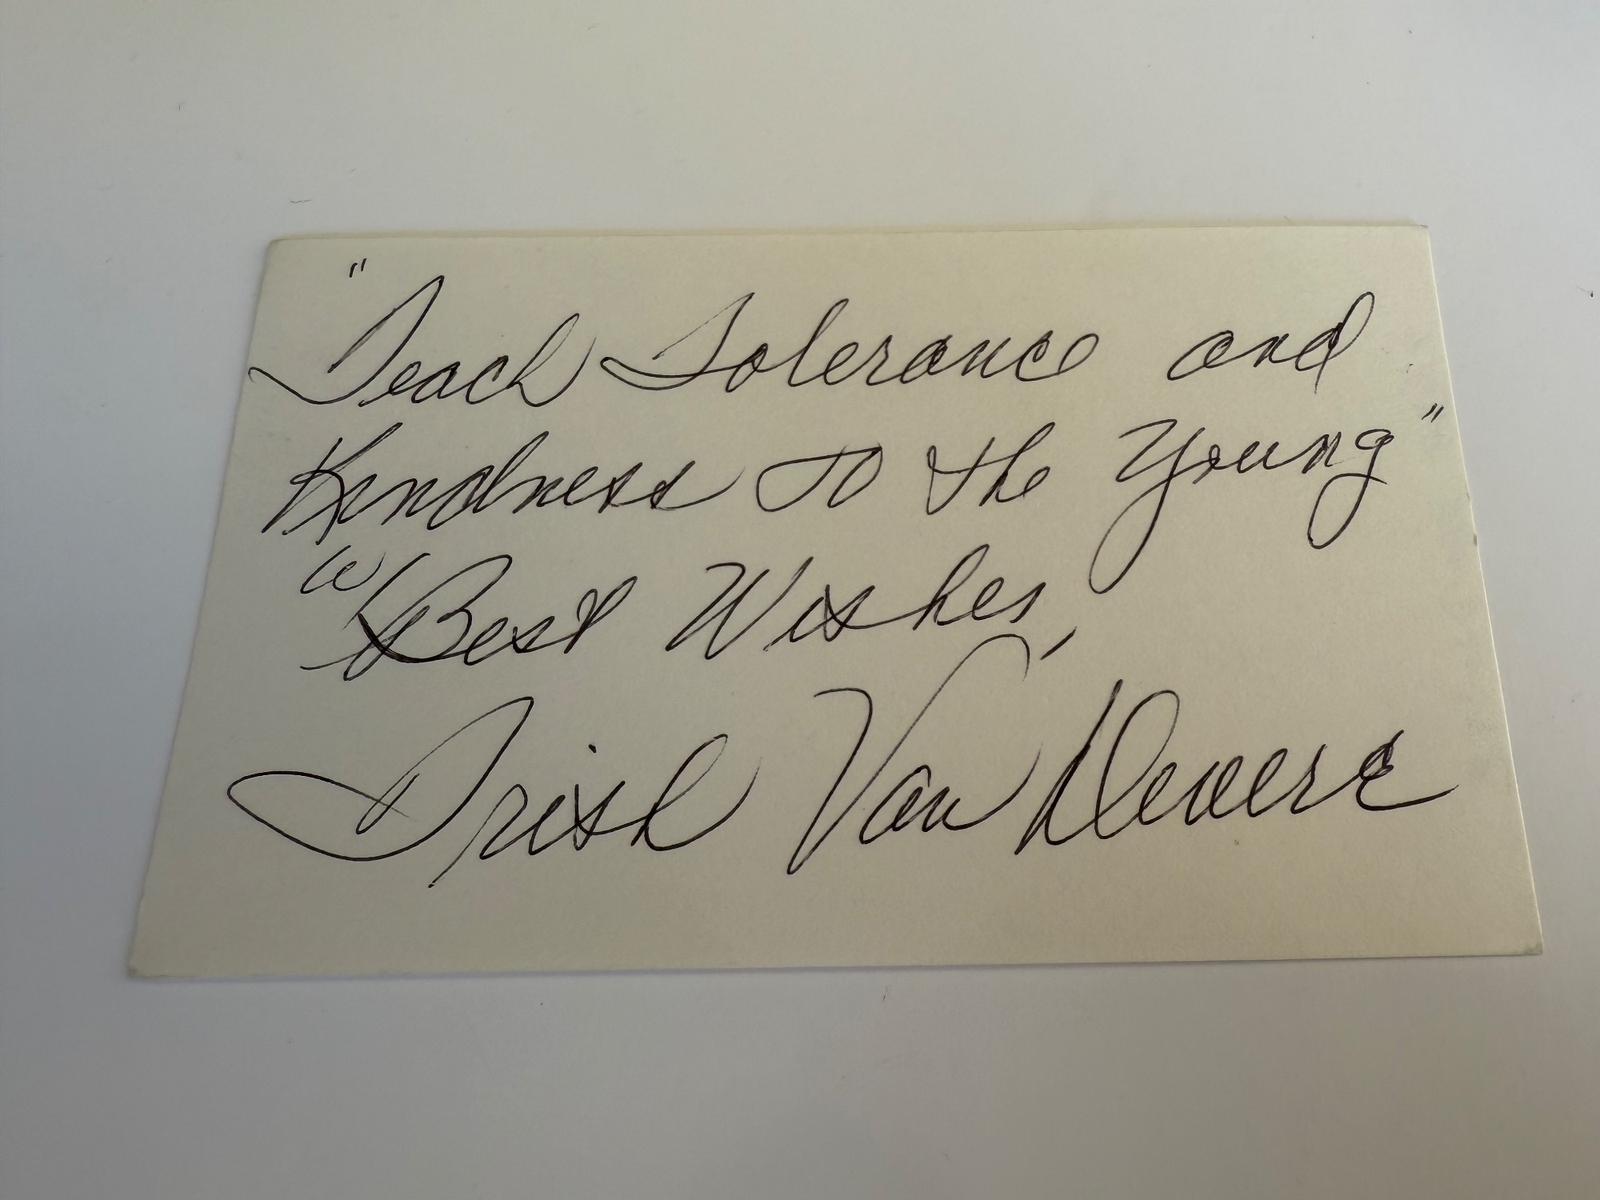 "Teach Tolerance and
Kindness to the Young"
w/Best Wishes,
Trish Van Devere